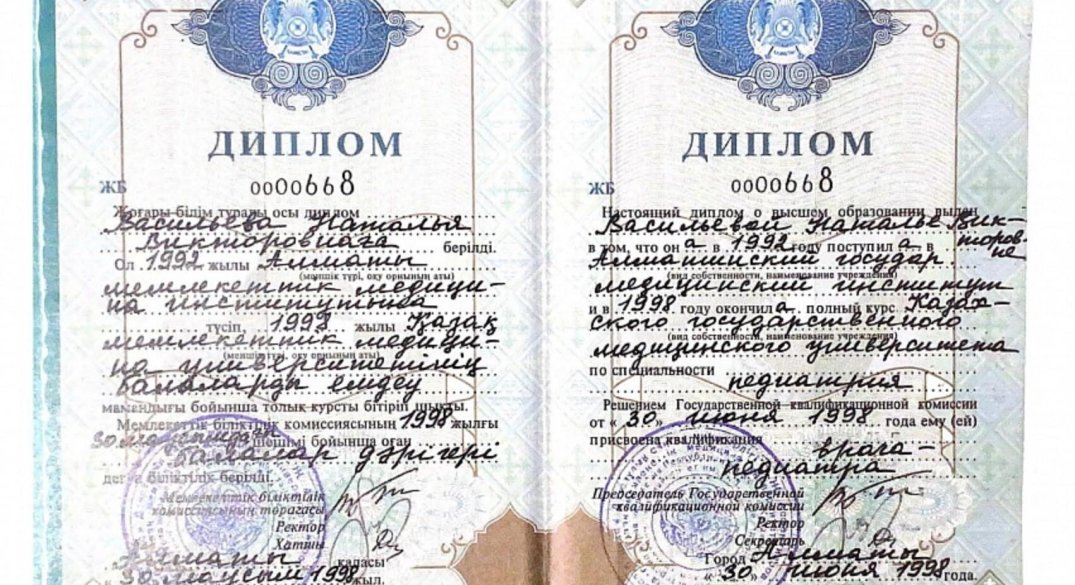 ДИПЛОМ
ЖБ 0000668
Жоғары білім туралы осы диплом
Васильева Наталья
Викторовнаға берілді.
Ол 1992 жылы Алматы
(меншік түрі, оқу орнының аты)
мемлекеттік медици-
на институтына
түсіп, 1998 жылы Қазақ
мемлекеттік медици-
(меншік түрі, оқу орнының аты)
на университетінің
балаларды емдеу
мамандығы бойынша толық курсты бітіріп шықты.
Мемлекеттік біліктілік комиссиясының 1998 жылғы
30 шешімі бойынша оған
балалар дәрігері
деген біліктілік берілді.
Мемлекеттік біліктілік
комиссиясының төрағасы
Ректор
Хатшы
Алматы қаласы
« 30 маусым 1998 жыл.
ДИПЛОМ
ЖБ 0000668
Настоящий диплом о высшем образовании выдан
Васильевой Наталье Вик-
торовне
в том, что он а в 1992 году поступил а в
Алматинский государ.
(вид собственности, наименование учреждения)
медицинский институт
и в 1998 году окончил а полный курс Казах-
ского государственного
(вид собственности, наименование учреждения)
медицинского университета
по специальности
педиатрия
Решением Государственной квалификационной комиссии
от « 30 » июня 1998 года ему (ей)
присвоена квалификация
врача-
педиатра
Председатель Государственной
квалификационной комиссии
Ректор
Секретарь
Город Алматы
« 30 » июня 1998 года.